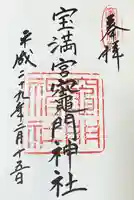 奉拝
宝満宮竈門神社
平成二十九年二月十五日